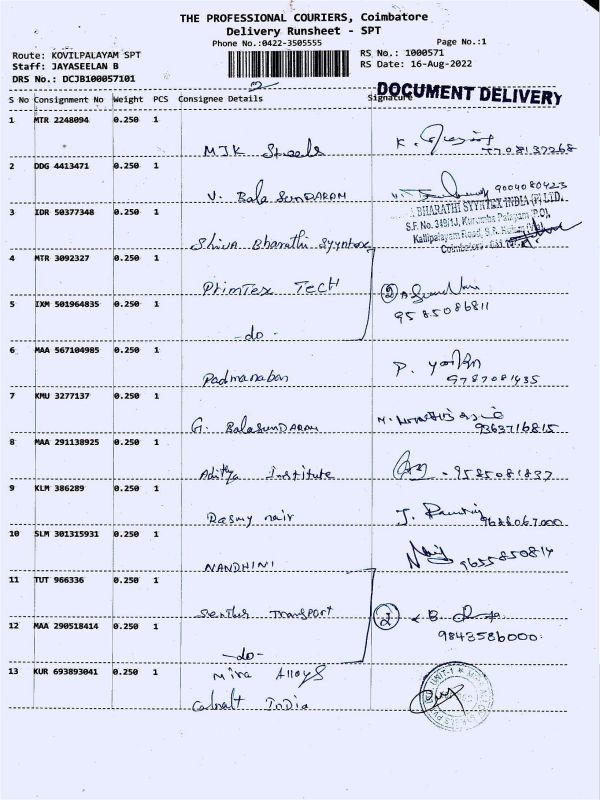 THE PROFESSIONAL COURIERS, Coimbatore
Delivery Runsheet - SPT
Phone No.:0422-3505555
Page No.:1
Route: KOVILPALAYAM SPT
RS No.: 1000571
Staff: JAYASEELAN B
RS Date: 16-Aug-2022
DRS No.: DCJB100057101
DOCUMENT DELIVERY
S No Consignment No Weight PCS Consignee Details Signature
1 MTR 2248094 0.250 1
MJK Steels K. 7708137268
2 DDG 4413471 0.250 1
V. Bala SunDARAM 9004080423
3 IDR 50377348 0.250 1
BHARATHI SYYNTEX INDIA (P) LTD.
S.F. No. 349/1J, Kurumba Palayam (P.O),
Kalipalayam Road, S.S. Kulam (Via)
Coimbatore - 641
Shiva Bharathi Syyntex
4 MTR 3092327 0.250 1
PrimTex TecH 2
5 IXM 501964835 0.250 1
9585086811
-do-
6 MAA 567104985 0.250 1
Padmanaban P.
9787081435
7 KMU 3277137 0.250 1
G. BalaSunDARAM 9363716815
8 MAA 291138925 0.250 1
Aditya Institute - 9585081837
9 KLM 386289 0.250 1
Rasmy nair J. 9688067000
10 SLM 301315931 0.250 1
NANDHINI 9655850814
11 TUT 966336 0.250 1
Senthur Transport 2 B.
12 MAA 290518414 0.250 1
9843586000
-do-
13 KUR 693893041 0.250 1
Mira Alloys
India
UNIT-1